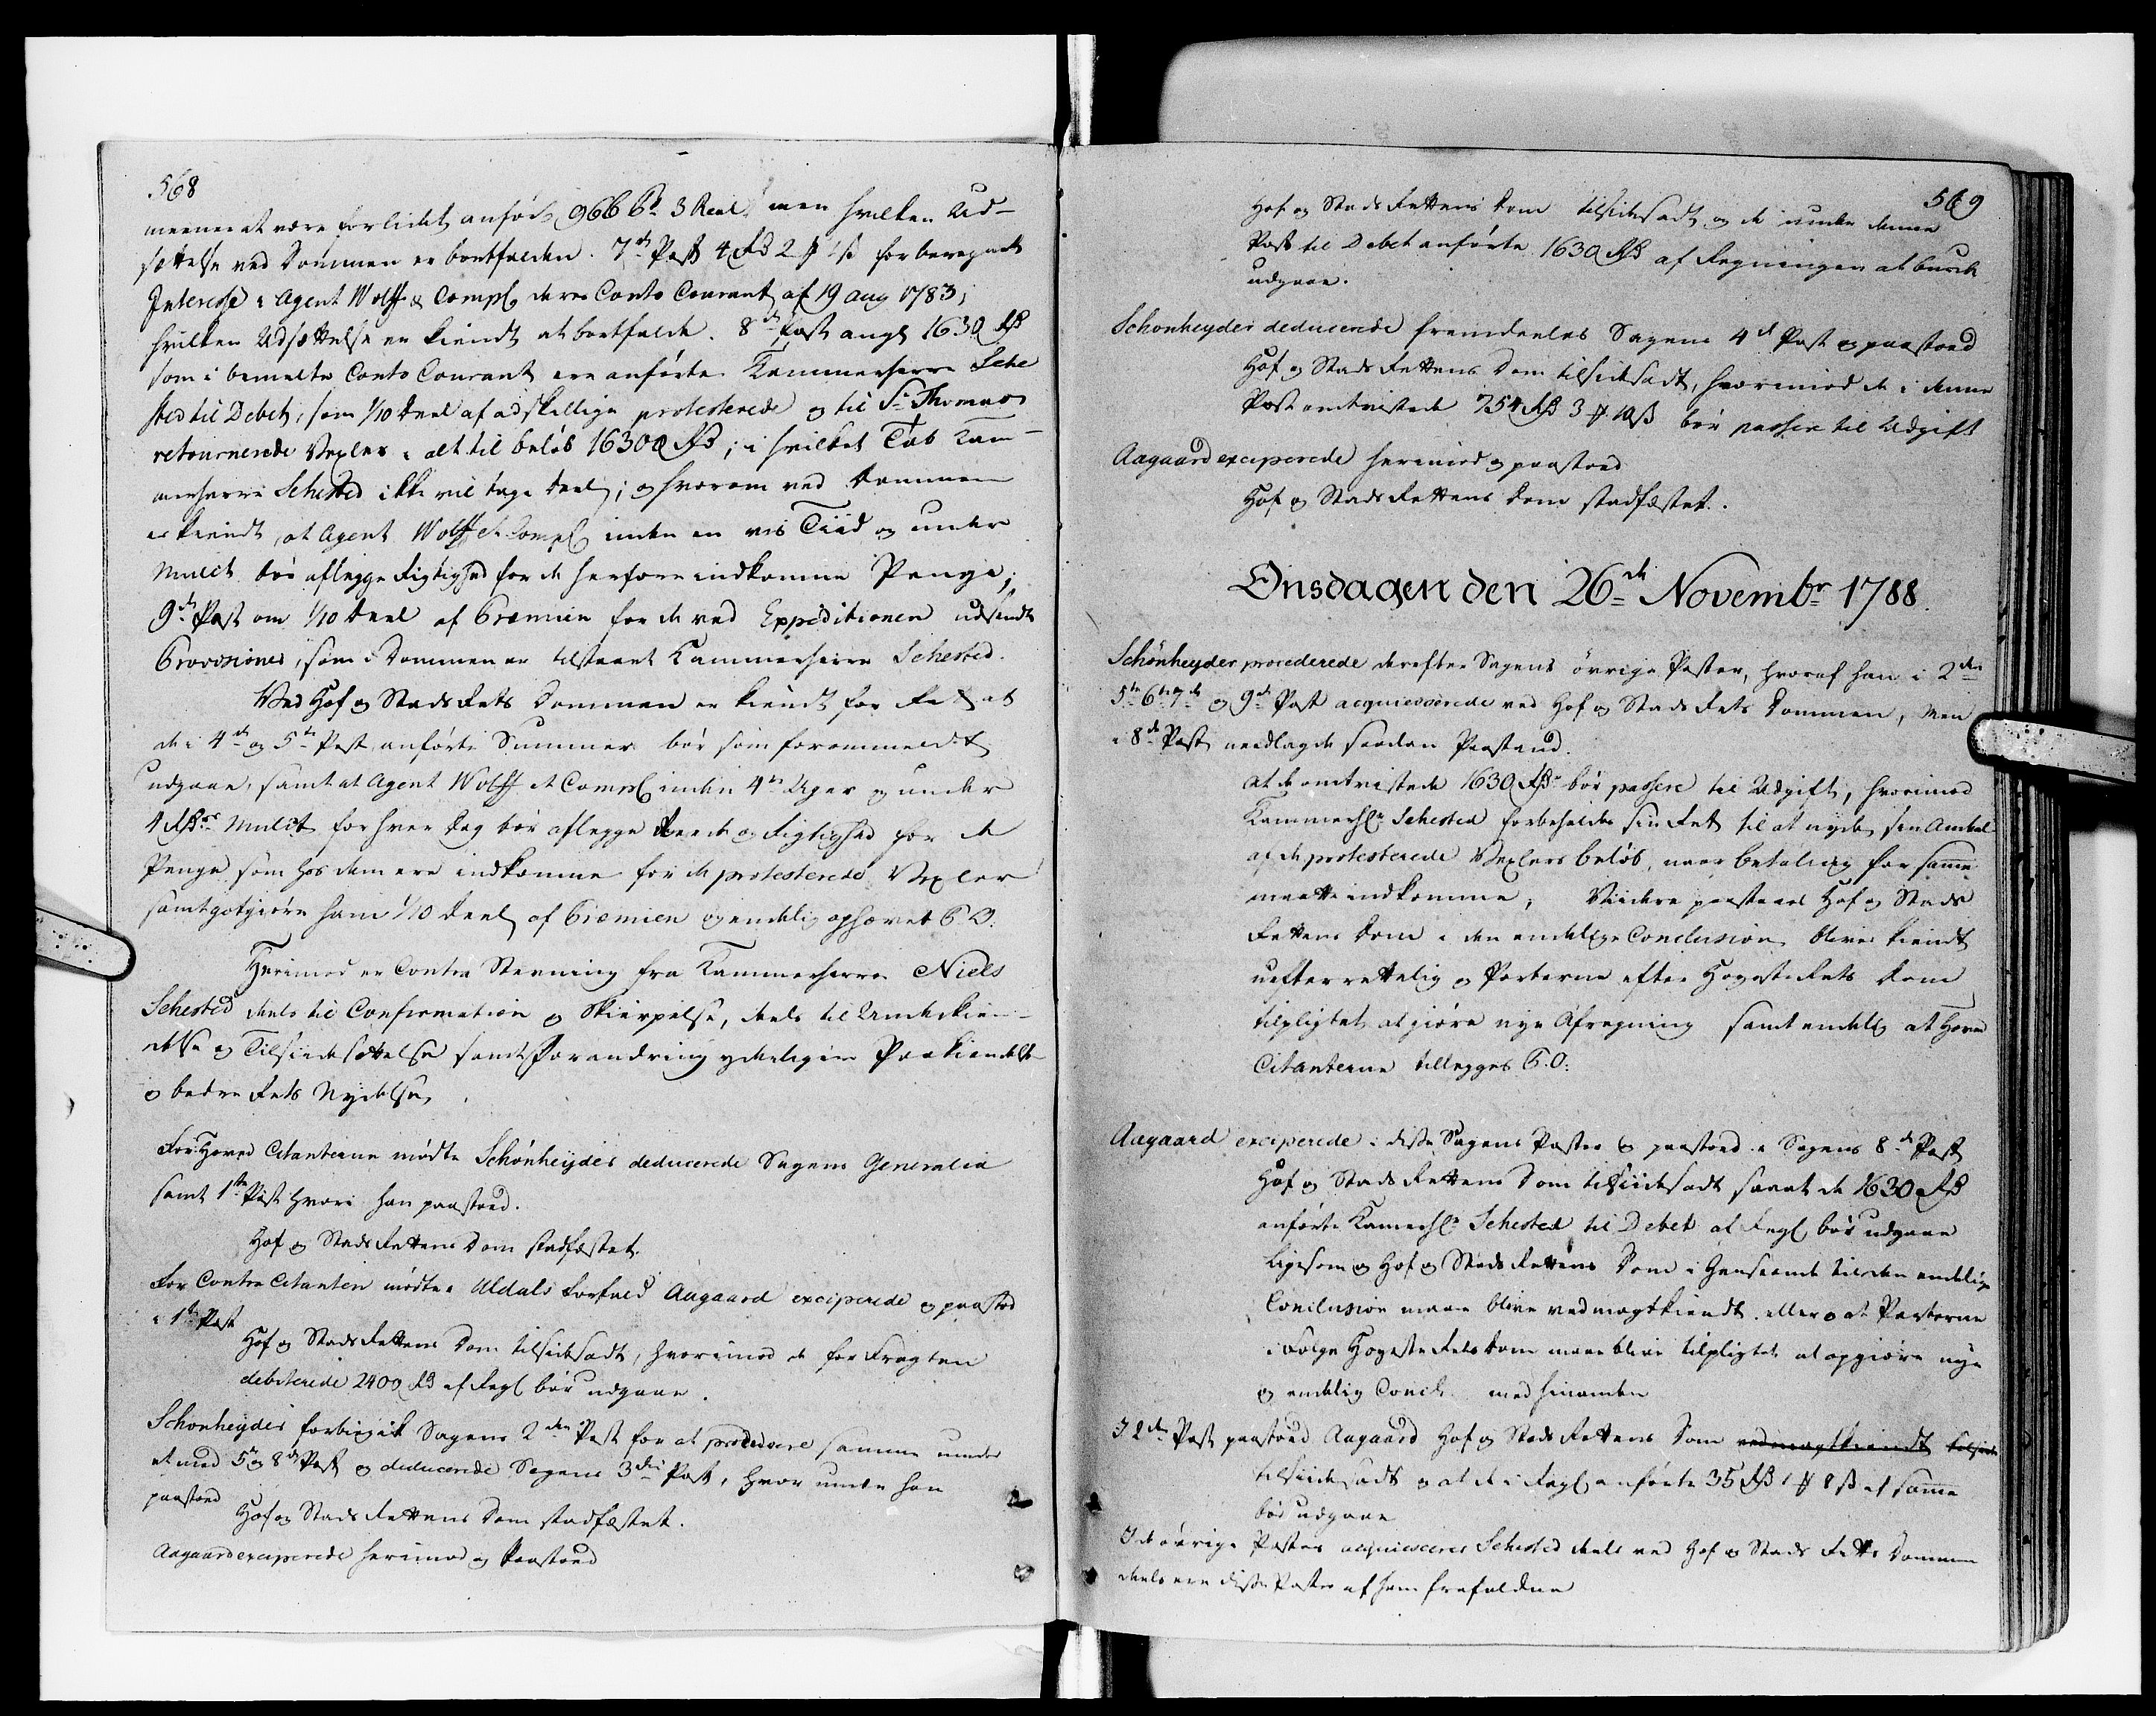 568
meener at være for lidet anført 966 Pd 3 Real men hvilken Ud-
sættelse ved Dommen er bortfalden. 7de Post 4 Rd 2 ₰ 1 ß for beregnet
Interesse i Agent Wolff & Comps deres Conto Courant af 19 aug 1783;
hvilken Udsættelse er kiendt at bortfalde. 8de Post angl 1630 Rd
som i bemelte Conto Courant ere anførte Kammerherre Sehe
sted til Debet, som 1/10 Deel af adskillige protesterede og til St Thomas
retournerede Vexler i alt til beløb 16300 Rd; i hvilket Tab Kam-
merherre Sehested ikke vil tage Deel; og hvorom ved Dommen
er kiendt, at Agent Wolff & Comps inden en vis Tiid og under
Mulct bør aflegge Rigtighed for de herfore indkomne Penge;
9de Post om 1/10 Deel af Præmien for de ved Expeditionen udsendte
Provisioner, som i Dommen er tilstaaet Kammerherre Sehested.
Ved Hof og Stads Rets Dommen er kiendt for Ret at
de i 4de og 5te Post anførte Summer bør som forommeldt
udgaae, samt at Agent Wolff et Comps inden 4re Uger og under
4 Rdrs Mulct for hver Dag bør aflegge Reede og Rigtighed for de
Penge som hos dem ere indkomne for de protesterede Vexler
samt godtgiøre ham 1/10 Deel af Præmien og endelig ophævet P. O.
Herimod er Contra Stevning fra Kammerherre Niels
Sehested deels til Confirmation og Skierpelse, deels til Underkien-
delse og Tilsidesættelse samt Forandring ydeligere Paakiendelse
og bedre Rets Nydelse,
For Hoved Citanterne mødte Schønheyder deducerede Sagens Generalia
samt 1ste Post hvori han paastoed.
Hof og Stads Rettens Dom stadfæstet.
For Contra Citanten mødte i Uldals Forfald Aagaard exciperede og paastod
i 1ste Post
Hof og Stads Rettens Dom tilsidesadt, hvorimod de for Fragten
debiterede 2400 Rd af Regl bør udgaae.
Schønheyder forbigik Sagens 2den Post for at procedere samme under
et med 5te og 8de Post og deducerede Sagens 3die Post, hvor under han
paastoed
Hof og Stads Rettens Dom stadfæstet.
Aagaard exciperede herimod og Paastoed
569
Hof og Stads Rettens Dom tilsidesadt og de under denne
Post til Debet anførte 1630 Rd af Regningen at burde
udgaae.
Schønheyder deducerede fremdeeles Sagens 4de Post og paastoed
Hof og Stads Rettens Dom tilsidesadt, hvorimod de i denne
Post omtvistede 754 Rd 3 ₰ 10 ß bør passere til Udgift
Aagaard exciperede herimod og paastoed
Hof og Stads Rettens Dom stadfæstet.
Onsdagen den 26de Novembr 1788.
Schønheyder procederede derefter Sagens øvrige Poster, hvoraf han i 2den
5te 6te 7de og 9de Post acquiescerede ved Hof og Stads Rets Dommen, Men
i 8de Post nedlagde saadan Paastand.
At de omtvistede 1630 Rdr bør passere til Udgift, hvorimod
Kammerhr Sehested forbeholdes sin Ret til at nyde sin Andeel
af de protesterede Vexlers beløb, naar betaling for samme
maatte indkomme; Viidere paastaaes Hof og Stads
Rettens Dom i den endelige Conclusion bliver kiendt
uefterrettelig og Parterne efter Højeste Rets Dom
tilpligtet at giøre nye Afregning samt endelig at Hoved
Citanterne tillegges P. O:
Aagaard exciperede i disse Sagens Poster og paastoed i Sagens 8de Post
Hof og Stads Rettens Dom tilsiidesadt saaat de 1630 Rd
anførte Kamerhr Sehested til Debet af Regl bør udgaae
ligesom og Hof og Stads Rettens Dom i Henseende til den endelige
Conclusion maae blive ved magt kiendt eller og at Parterne
i Følge Højeste Rets Dom maae blive tilpligtet at opgiøre nye
og endelig Concl. med hinanden
I 2den Post paastoed Aagaard Hof og Stads Rettens Dom ved magt kiendt tilside
tilsiidesadt og at de i Regl anførte 35 Rd 1 ₰ 8 ß af samme
bør udgaae
I de øvrige Poster acquiescerer Sehested deels ved Hof og Stads Rettens Dommen
deels ere disse Poster af ham frafaldne